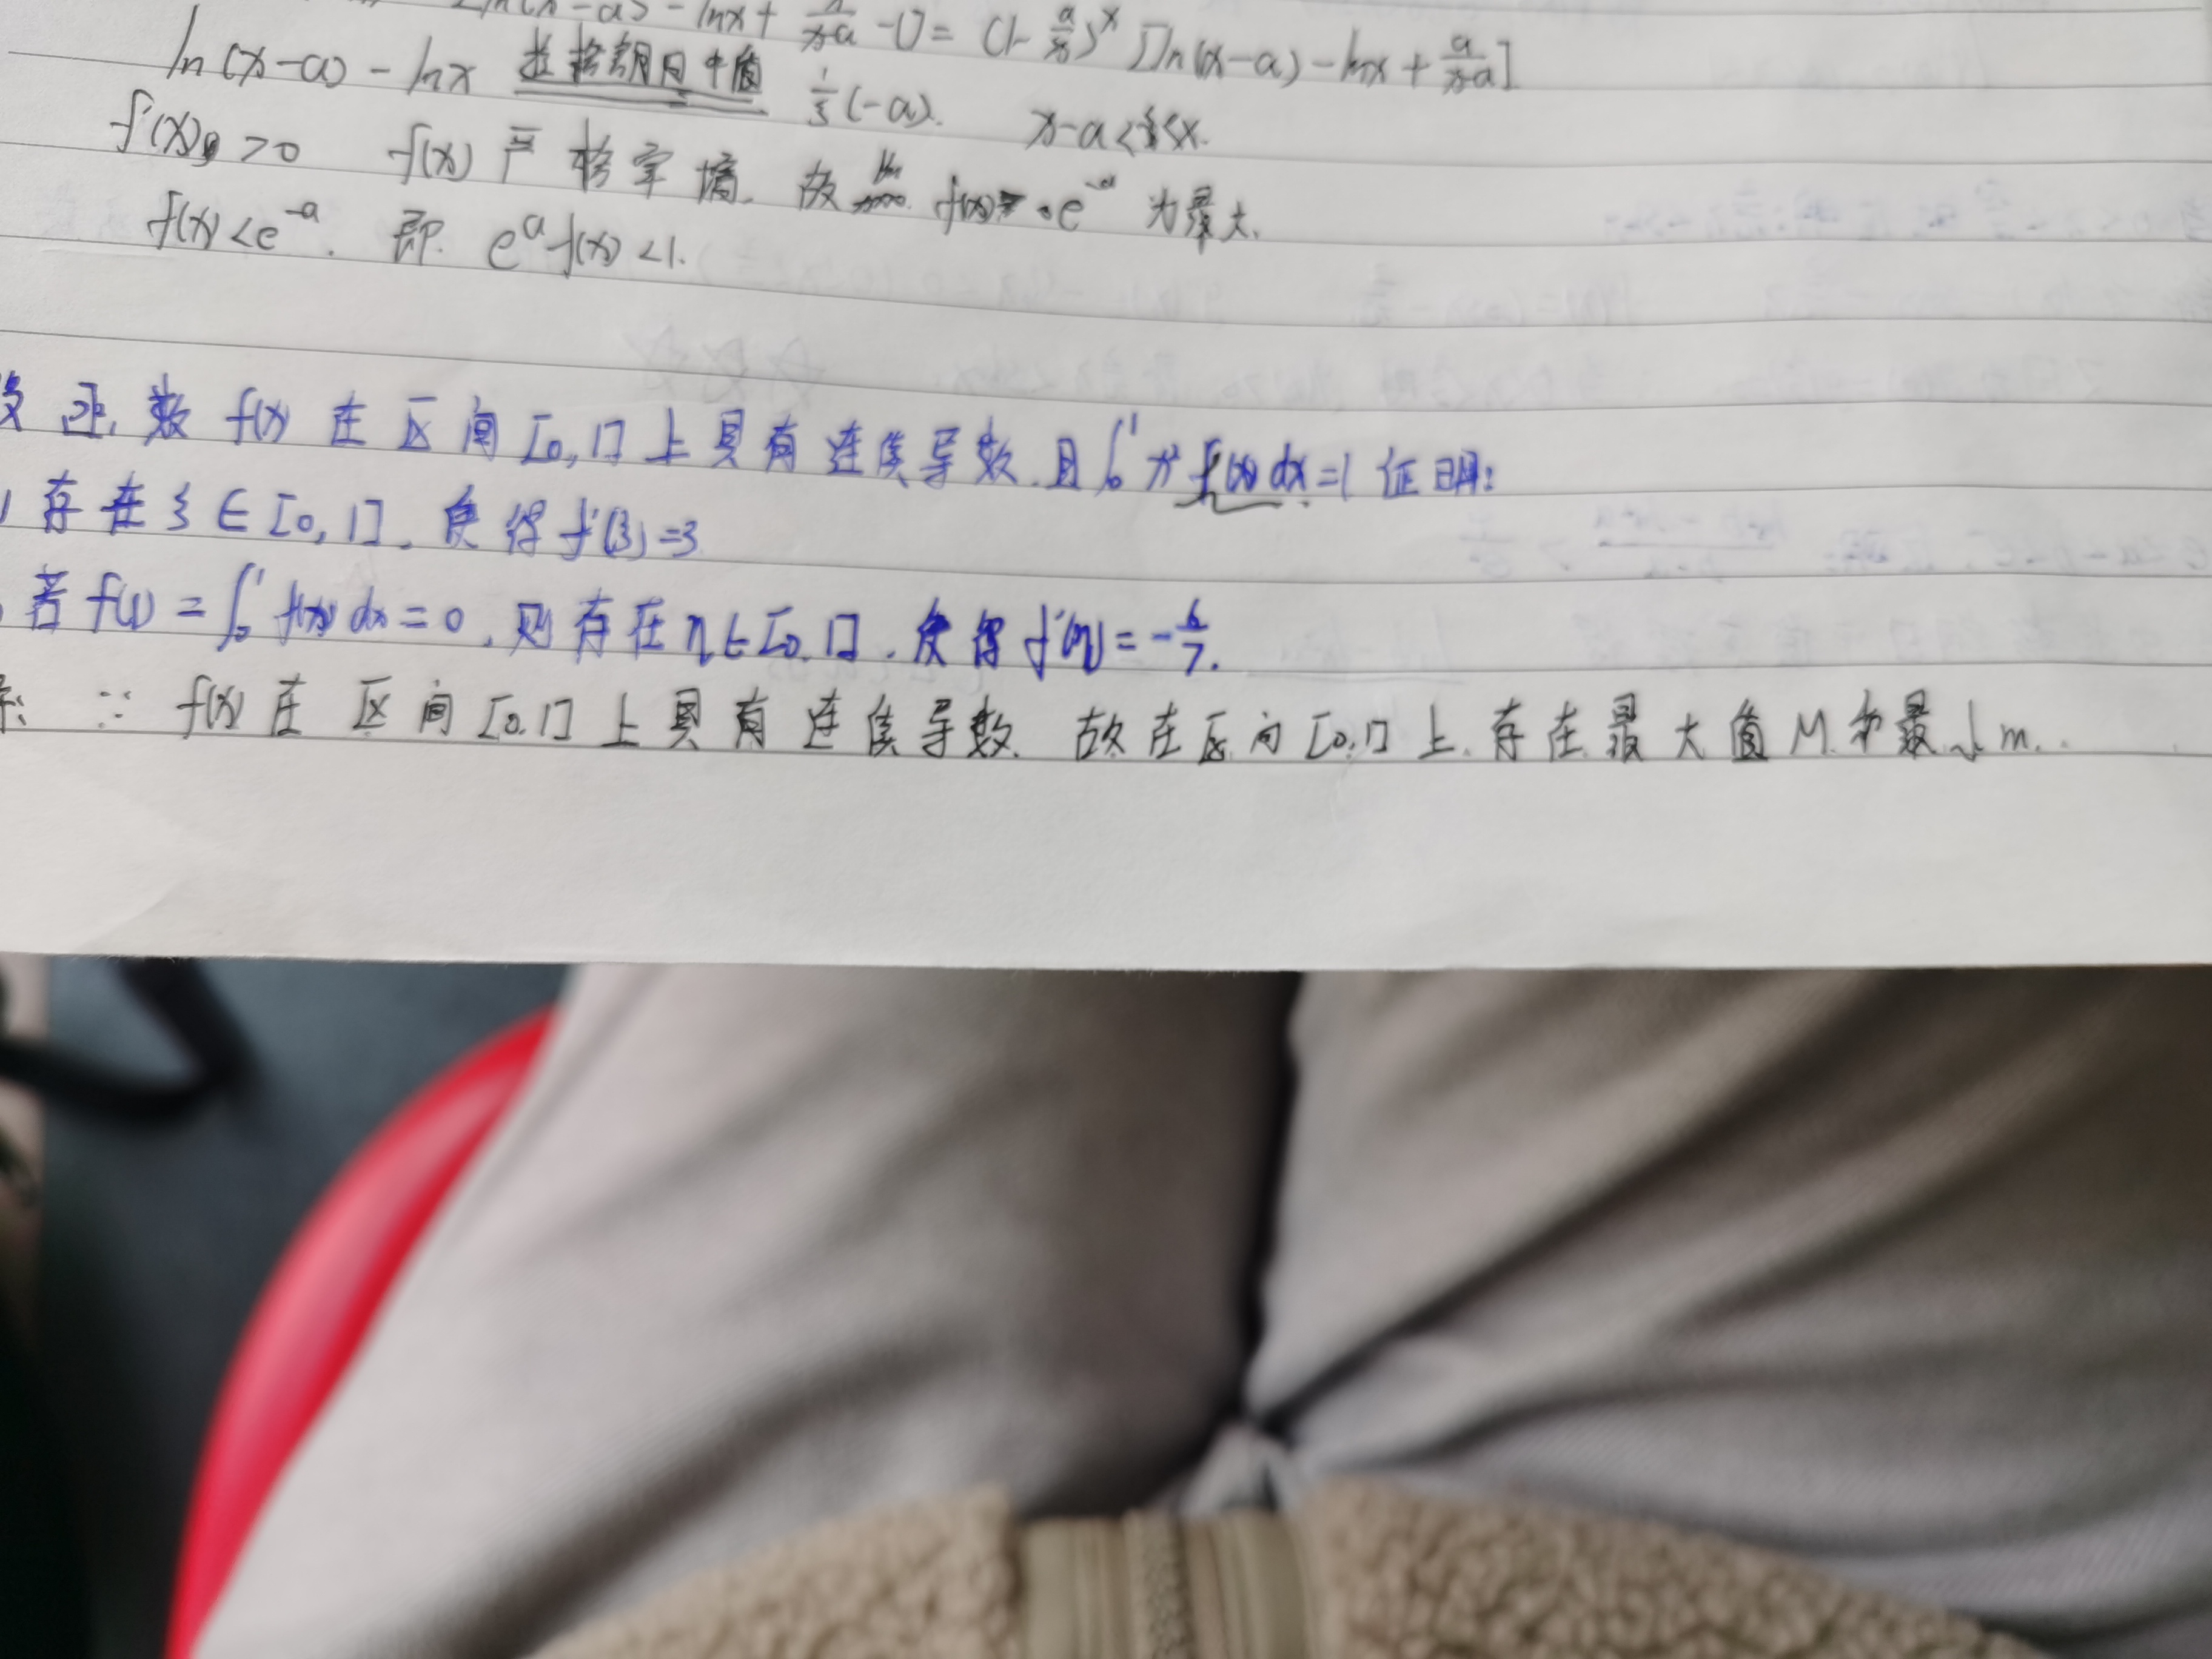 ln(x-a) - lnx + x/(x-a) - 1] = (1 - a/x)^x [ln(x-a) - lnx + a/(x-a)]
ln(x-a) - lnx 拉格朗日中值 1/ξ(-a). x-a<ξ<x.
f'(x) >0 f(x) 严格单增. 故 lim f(x) = e^-a 为最大.
f(x)<e^-a. 即. e^a f(x) <1.
数 f(x) 在区间[0,1]上具有连续导数.且∫₀¹ x² f(x) dx=1 证明:
存在ξ∈[0,1].使得f(ξ)=3
若f(1)=∫₀¹ f(x) dx=0.则存在η∈[0.1].使得f'(η)=-6/7.
∵ f(x)在区间[0.1]上具有连续导数. 故在区间[0,1]上.存在最大值M.和最小m.